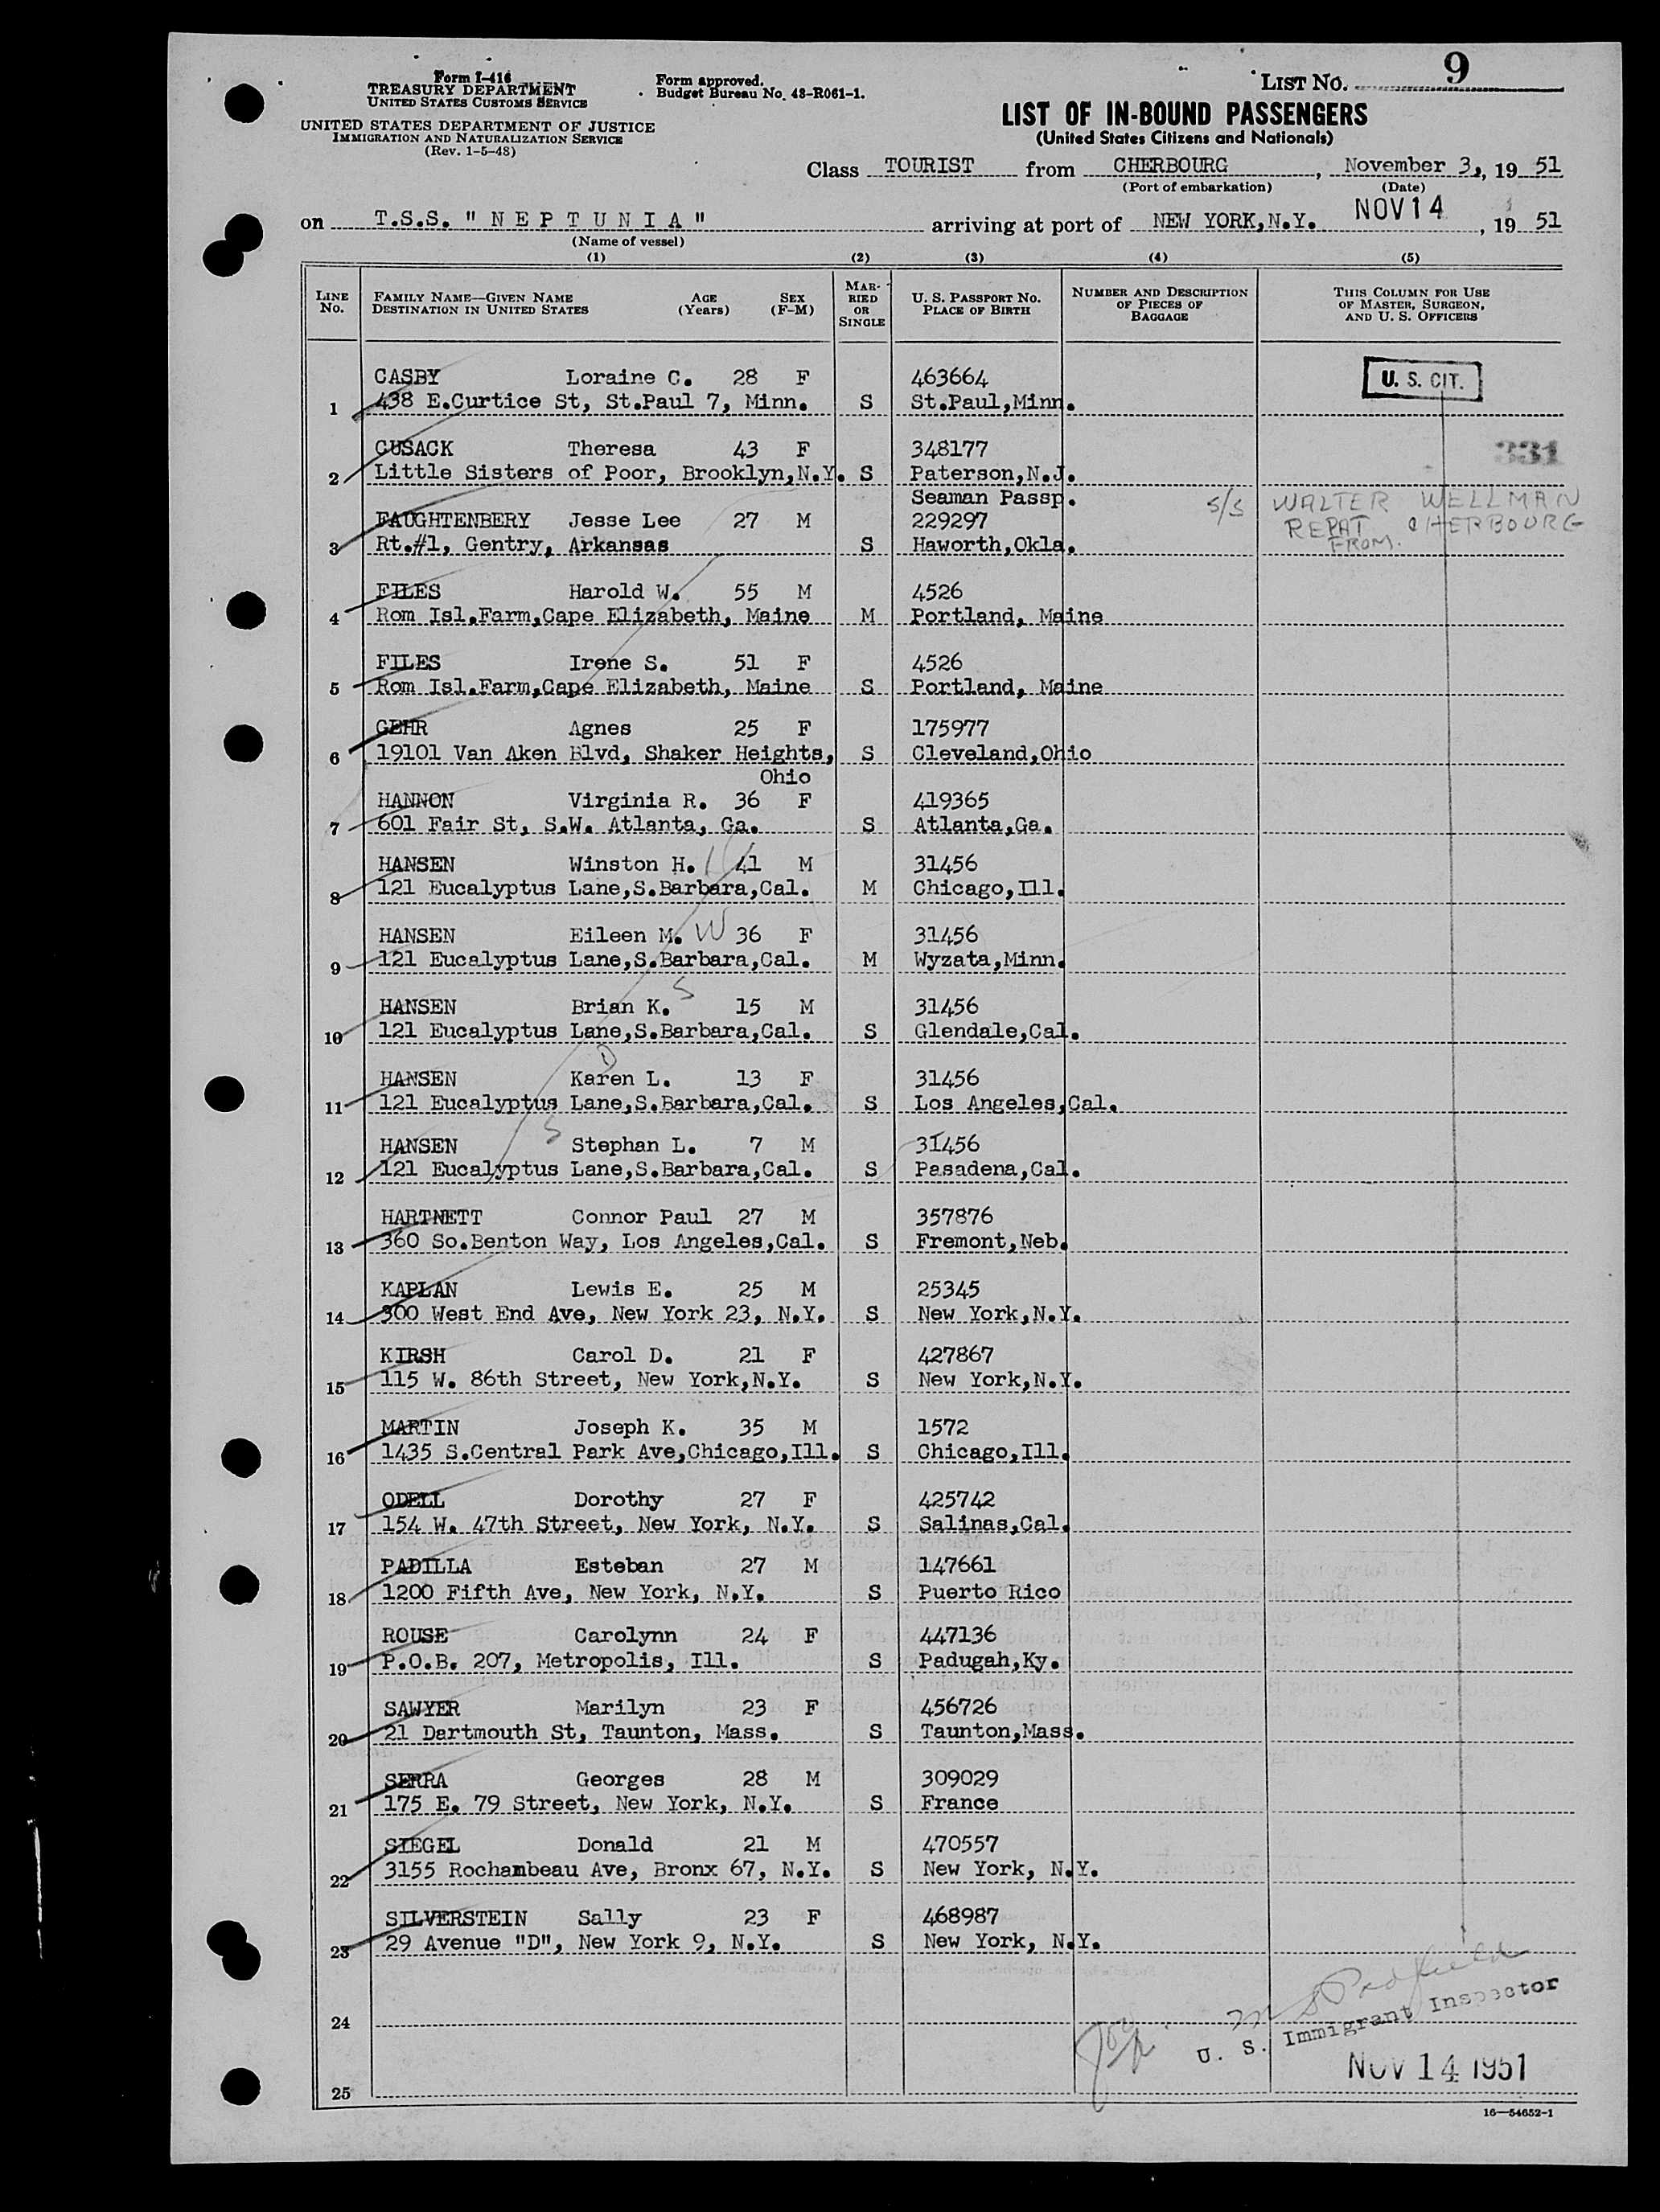 Form I-416
TREASURY DEPARTMENT
UNITED STATES CUSTOMS SERVICE
UNITED STATES DEPARTMENT OF JUSTICE
IMMIGRATION AND NATURALIZATION SERVICE
(Rev. 1-5-48)
Form approved.
Budget Bureau No. 43-R061-1.
LIST NO. 9
LIST OF IN-BOUND PASSENGERS
(United States Citizens and Nationals)
Class TOURIST from CHERBOURG, November 3., 19 51
(Port of embarkation) (Date)
on T.S.S. "NEPTUNIA" arriving at port of NEW YORK,N.Y. NOV 14, 19 51
(Name of vessel)
(1) (2) (3) (4) (5)
LINE NO. FAMILY NAME—GIVEN NAME DESTINATION IN UNITED STATES AGE (Years) SEX (F-M) MARRIED OR SINGLE U. S. PASSPORT NO. PLACE OF BIRTH NUMBER AND DESCRIPTION OF PIECES OF BAGGAGE THIS COLUMN FOR USE OF MASTER, SURGEON, AND U. S. OFFICERS
CASBY Loraine C. 28 F 463664 U. S. CIT.
1 438 E.Curtice St, St.Paul 7, Minn. S St.Paul,Minn.
CUSACK Theresa 43 F 348177 331
2 Little Sisters of Poor, Brooklyn,N.Y. S Paterson,N.J.
Seaman Passp. S/S WALTER WELLMAN
FAUGHTENBERY Jesse Lee 27 M 229297 REPAT. CHERBOURG
3 Rt.#1, Gentry, Arkansas S Haworth,Okla. FROM.
FILES Harold W. 55 M 4526
4 Rom Isl.Farm,Cape Elizabeth, Maine M Portland, Maine
FILES Irene S. 51 F 4526
5 Rom Isl.Farm,Cape Elizabeth, Maine S Portland, Maine
GEHR Agnes 25 F 175977
6 19101 Van Aken Blvd, Shaker Heights, S Cleveland,Ohio
Ohio
HANNON Virginia R. 36 F 419365
7 601 Fair St, S.W. Atlanta, Ga. S Atlanta,Ga.
HANSEN Winston H. 41 M 31456
8 121 Eucalyptus Lane,S.Barbara,Cal. M Chicago,Ill.
HANSEN Eileen M. W 36 F 31456
9 121 Eucalyptus Lane,S.Barbara,Cal. M Wyzata,Minn.
S
HANSEN Brian K. 15 M 31456
10 121 Eucalyptus Lane,S.Barbara,Cal. S Glendale,Cal.
D
HANSEN Karen L. 13 F 31456
11 121 Eucalyptus Lane,S.Barbara,Cal. S Los Angeles,Cal.
S
HANSEN Stephan L. 7 M 31456
12 121 Eucalyptus Lane,S.Barbara,Cal. S Pasadena,Cal.
HARTNETT Connor Paul 27 M 357876
13 360 So.Benton Way, Los Angeles,Cal. S Fremont,Neb.
KAPLAN Lewis E. 25 M 25345
14 300 West End Ave, New York 23, N.Y. S New York,N.Y.
KIRSH Carol D. 21 F 427867
15 115 W. 86th Street, New York,N.Y. S New York,N.Y.
MARTIN Joseph K. 35 M 1572
16 1435 S.Central Park Ave,Chicago,Ill. S Chicago,Ill.
ODELL Dorothy 27 F 425742
17 154 W. 47th Street, New York, N.Y. S Salinas,Cal.
PADILLA Esteban 27 M 147661
18 1200 Fifth Ave, New York, N.Y. S Puerto Rico
ROUSE Carolynn 24 F 447136
19 P.O.B. 207, Metropolis, Ill. S Padugah,Ky.
SAWYER Marilyn 23 F 456726
20 21 Dartmouth St, Taunton, Mass. S Taunton,Mass.
SERRA Georges 28 M 309029
21 175 E. 79 Street, New York, N.Y. S France
SIEGEL Donald 21 M 470557
22 3155 Rochambeau Ave, Bronx 67, N.Y. S New York, N.Y.
SILVERSTEIN Sally 23 F 468987
23 29 Avenue "D", New York 9, N.Y. S New York, N.Y.
24
U. S. Immigrant Inspector
NOV 14 1951
25
16—54652-1